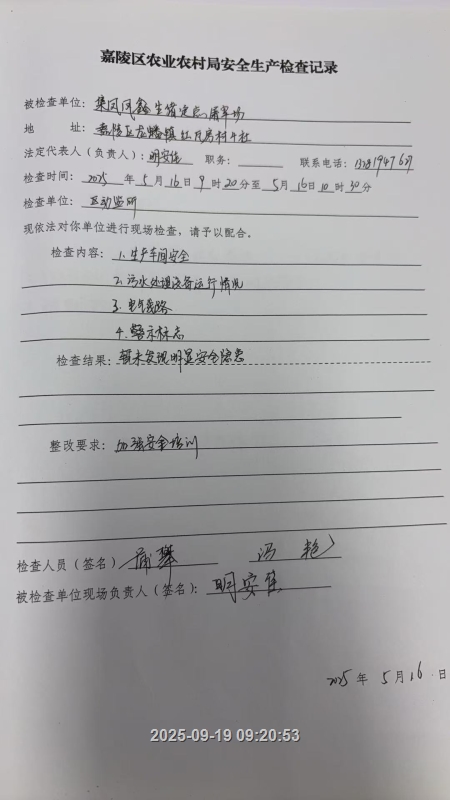 嘉陵区农业农村局安全生产检查记录
被检查单位：集凤凤鑫生猪定点屠宰场
地 址：嘉陵区龙蟠镇 村 社
法定代表人（负责人）：明安佳 职务： 联系电话：
检查时间：2025 年 5 月 16 日 9 时 20 分至 5 月 16 日 10 时 30 分
检查单位：区动监所
现依法对你单位进行现场检查，请予以配合。
检查内容：1、生产车间安全
2、污水处理设备运行情况
3、电气线路
4、警示标志
检查结果：暂未发现明显安全隐患
整改要求：加强安全培训
检查人员（签名） 冯艳
被检查单位现场负责人（签名）：明安佳
2025 年 5 月 16 日
2025-09-19 09:20:53